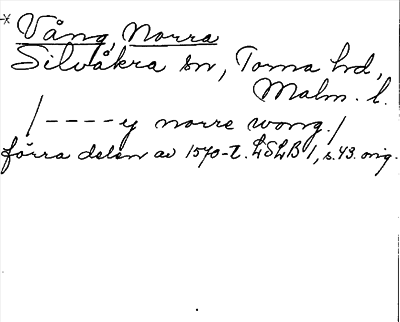 * Vång, Norra
Silvåkra sn, Torna hd,
Malm. l.
/ - - - - y norre wong. /
förra delen av 1570-t. LSLB 1, s. 43. orig.